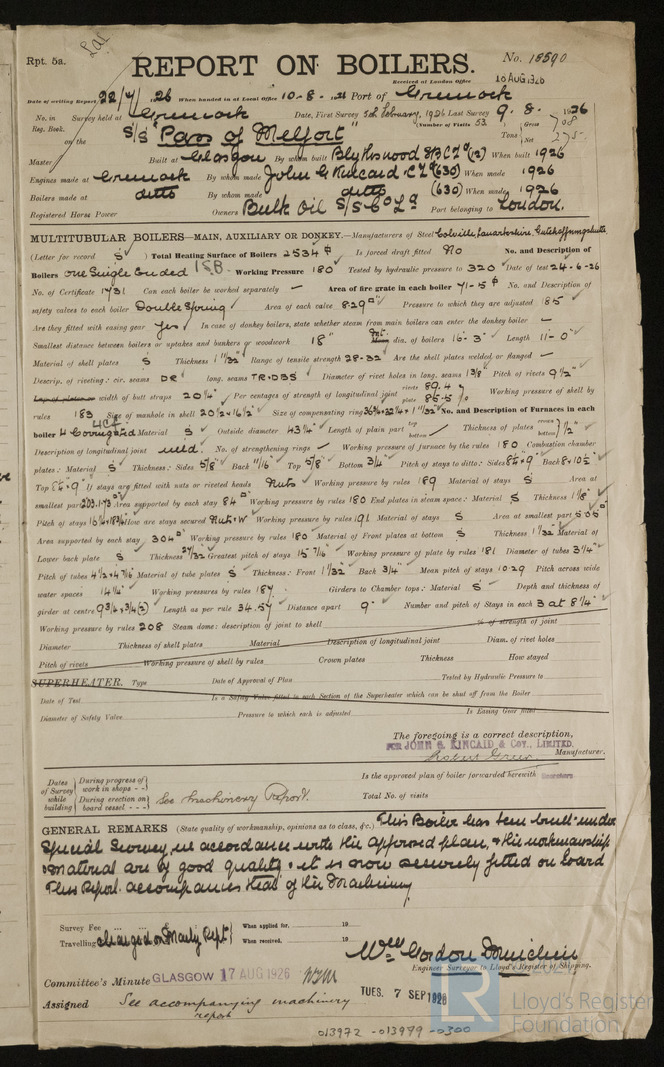 Rpt. 5a.
REPORT ON BOILERS.
No. 15590
Received at London Office
10 AUG 1926
Date of writing Report 22/7/1926 When handed in at Local Office 10-8-1926 Port of Greenock
No. in Survey held at Greenock Date, First Survey 5th February, 1926 Last Survey 9. 8. 1926
Reg. Book.
(Number of Visits 53
on the S/S "Pass of Melfort" Tons { Gross 798 Net 275.
Master Built at Glasgow By whom built Blythswood SB Co Ld (12) When built 1926
Engines made at Greenock By whom made John G Kincaid & Co Ld (630) When made 1926
Boilers made at ditto By whom made ditto (630) When made 1926
Registered Horse Power Owners Bulk Oil S/S Co Ld Port belonging to London.
MULTITUBULAR BOILERS—MAIN, AUXILIARY OR DONKEY.—Manufacturers of Steel Colville, Lanarkshire, Gutehoffnungshutte
(Letter for record S) Total Heating Surface of Boilers 2534 Is forced draft fitted No No. and Description of
Boilers one Single Ended 1SB Working Pressure 180 Tested by hydraulic pressure to 320 Date of test 24-6-26
No. of Certificate 1731 Can each boiler be worked separately — Area of fire grate in each boiler 71-5 No. and Description of
safety valves to each boiler Double Spring Area of each valve 8.29 Pressure to which they are adjusted 185
Are they fitted with easing gear yes In case of donkey boilers, state whether steam from main boilers can enter the donkey boiler —
Smallest distance between boilers or uptakes and bunkers or woodwork 18" Int. dia. of boilers 16-3" Length 11-0"
Material of shell plates S Thickness 1 11/32" Range of tensile strength 28-32 Are the shell plates welded or flanged —
Descrip. of riveting: cir. seams DR long. seams TR.DBS Diameter of rivet holes in long. seams 1 3/8" Pitch of rivets 9 1/2"
Lap of plates or width of butt straps 20 1/4" Per centages of strength of longitudinal joint rivets 89.4 plate 85.5 Working pressure of shell by
rules 183 Size of manhole in shell 20 1/2 x 16 1/2" Size of compensating ring 36 3/4 x 32 1/4 x 1 11/32" No. and Description of Furnaces in each
boiler 4 Corrugated Material S Outside diameter 43 1/4" Length of plain part top bottom Thickness of plates crown bottom } 1/2"
Description of longitudinal joint weld. No. of strengthening rings — Working pressure of furnace by the rules 180 Combustion chamber
plates: Material S Thickness: Sides 5/8" Back 11/16" Top 5/8" Bottom 3/4" Pitch of stays to ditto: Sides 8 1/4 x 9" Back 8 x 10 1/2"
Top 8 1/4 x 9" If stays are fitted with nuts or riveted heads Nuts Working pressure by rules 189 Material of stays S Area at
smallest part 2.03.1.73 Area supported by each stay 84 Working pressure by rules 180 End plates in steam space: Material S Thickness 1 1/8"
Pitch of stays 16 3/4 x 18 3/16 How are stays secured Nut + W Working pressure by rules 191 Material of stays S Area at smallest part 5.05
Area supported by each stay 304 Working pressure by rules 180 Material of Front plates at bottom S Thickness 1 1/32" Material of
Lower back plate S Thickness 27/32" Greatest pitch of stays 15 7/16" Working pressure of plate by rules 181 Diameter of tubes 3 1/4"
Pitch of tubes 4 1/2 x 4 7/16 Material of tube plates S Thickness: Front 1 1/32" Back 3/4" Mean pitch of stays 10.29 Pitch across wide
water spaces 14 1/4" Working pressures by rules 187. Girders to Chamber tops: Material S Depth and thickness of
girder at centre 9 3/4 x 3/4 (2) Length as per rule 34.57 Distance apart 9" Number and pitch of Stays in each 3 at 8 1/4"
Working pressure by rules 208 Steam dome: description of joint to shell % of strength of joint
Diameter Thickness of shell plates Material Description of longitudinal joint Diam. of rivet holes
Pitch of rivets Working pressure of shell by rules Crown plates Thickness How stayed
SUPERHEATER. Type Date of Approval of Plan Tested by Hydraulic Pressure to
Date of Test Is a Safety Valve fitted in each Section of the Superheater which can be shut off from the Boiler
Diameter of Safety Valve Pressure to which each is adjusted Is Easing Gear fitted
The foregoing is a correct description,
FOR JOHN G. KINCAID & COY., LIMITED.
Manufacturer.
Dates of Survey while building { During progress of work in shops - - During erection on board vessel - - - } See Machinery Report.
Is the approved plan of boiler forwarded herewith
Total No. of visits
GENERAL REMARKS (State quality of workmanship, opinions as to class, &c.) This Boiler has been built under
Special Survey in accordance with the approved plan, & the workmanship
& material are of good quality. it is now securely fitted on board
This Report accompanies that of the Machinery
Survey Fee When applied for, 19
Travelling charged on Machy Rept. When received, 19
Wm Gordon
Engineer Surveyor to Lloyd's Register of Shipping.
Committee's Minute GLASGOW 17 AUG 1926
TUES. 7 SEP 1926
Assigned See accompanying machinery
report
013972-013979-0300
LR
Lloyd's Register
Foundation